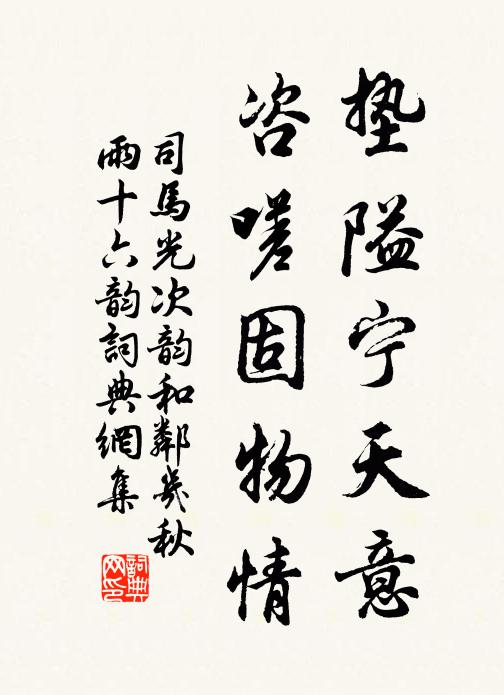 垫隘宁天意
咨嗟固物情
司馬光次韵和鄰幾秋
雨十六韵詞典網集
詞典
网印